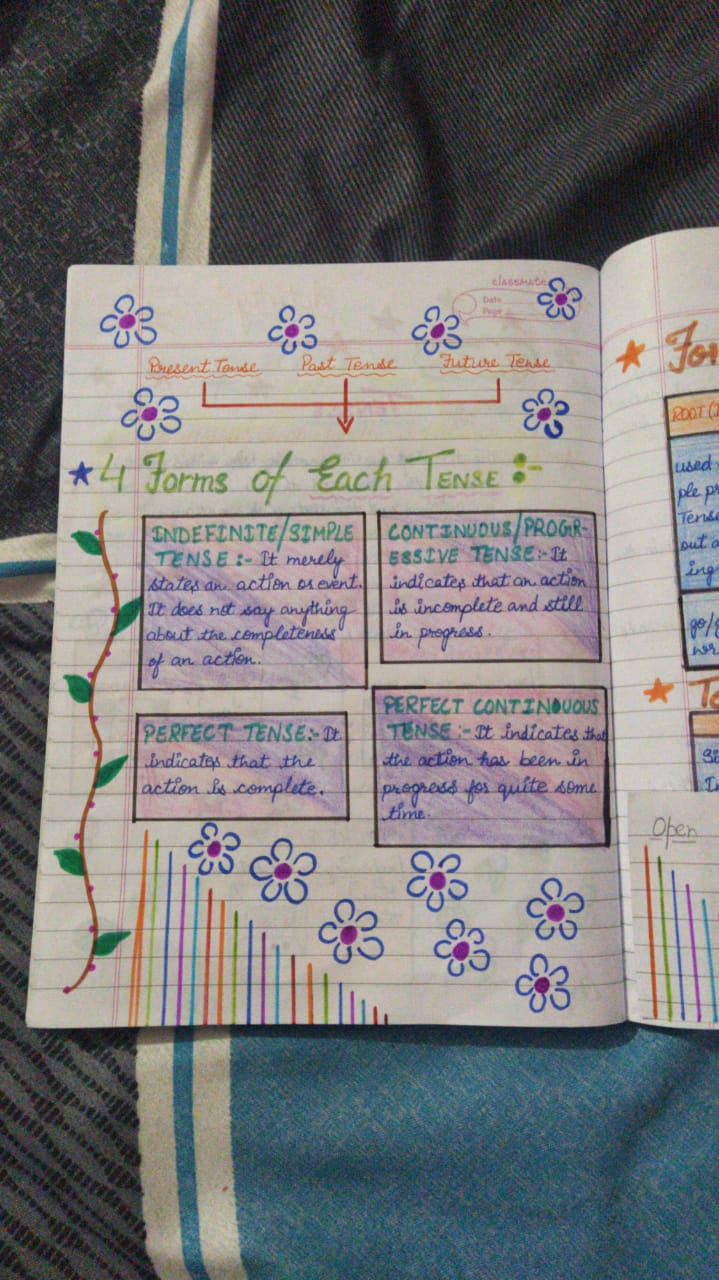 classmate
Date
Page
Present Tense Past Tense Future Tense
4 Forms of Each Tense :-
INDEFINITE/SIMPLE
TENSE :- It merely
states an action or event.
It does not say anything
about the completeness
of an action.
CONTINUOUS/PROGR-
ESSIVE TENSE:- It
indicates that an action
is incomplete and still
in progress.
PERFECT TENSE:- It
indicates that the
action is complete.
PERFECT CONTINUOUS
TENSE :- It indicates that
the action has been in
progress for quite some
time.
For
ROOT (I
used
ple pr
Tense
out a
ing
go/g
wor
Open